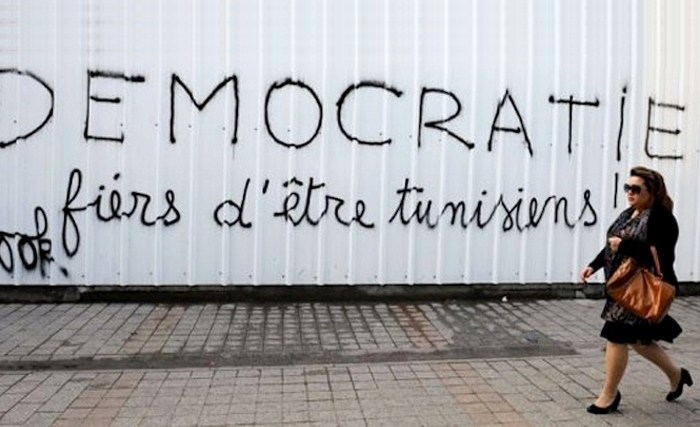 DEMOCRATiE
fiers d'être tunisiens !